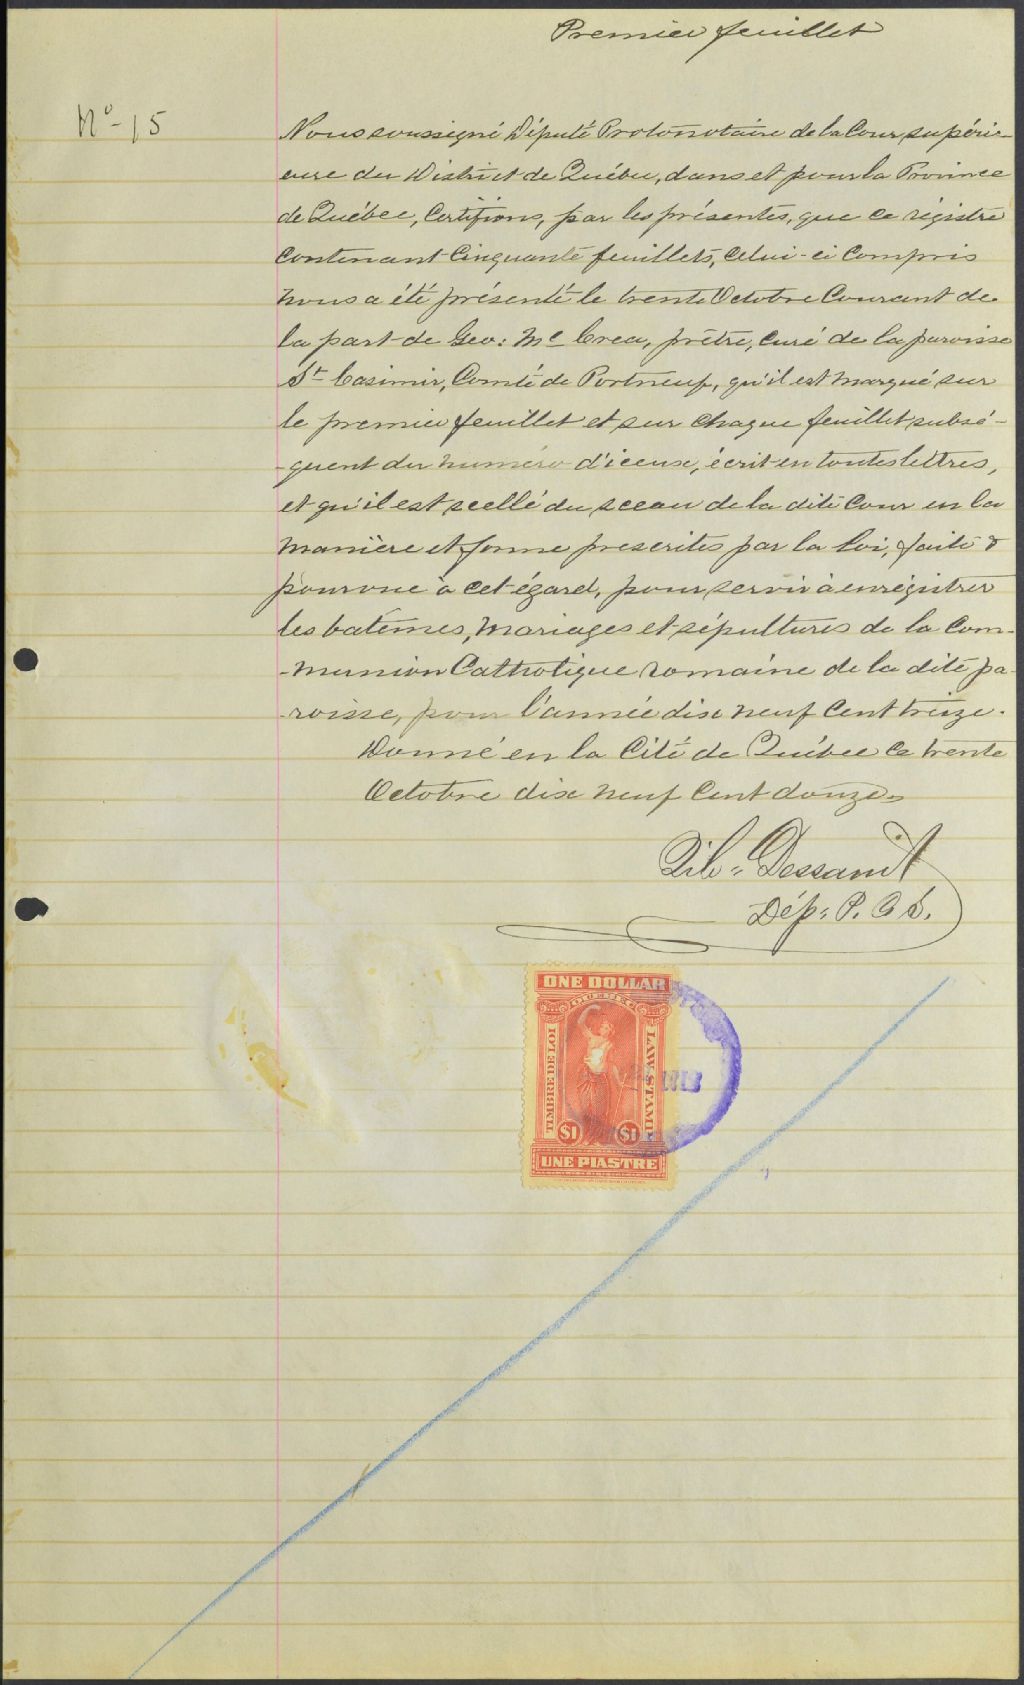 Premier feuillet
No-15
Nous soussigné Député Protonotaire de la Cour supéri-
eure du District de Québec, dans et pour la Province
de Québec, Certifions, par les présentes, que ce régistre
contenant Cinquante feuillets, celui-ci Compris
nous a été présenté le trente Octobre Courant de
la part de Geo: Mc Crea, prêtre, Curé de la paroisse
St Casimir, Comté de Portneuf, qu'il est marqué sur
le premier feuillet et sur chaque feuillet subsé-
-quent du numéro d'iceux, écrit en toutes lettres,
et qu'il est scellé du sceau de la dite Cour en la
manière et forme prescrites par la loi, faite &
pourvue à cet égard, pour servir à enrégistrer
les batêmes, Mariages et sépultures de la Com-
-munion Catholique romaine de la dite pa-
-roisse, pour l'année dix neuf Cent treize.
Donné en la Cité de Québec ce trente
Octobre dix neuf Cent douze.
Dép: P. C S.
ONE DOLLAR
QUEBEC
TIMBRE DE LOI
LAW STAMP
$1 $1
UNE PIASTRE